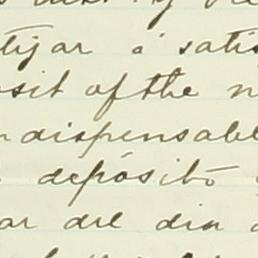 tijar á satis
sit of the n
ndispensable
depósito
ar del dia